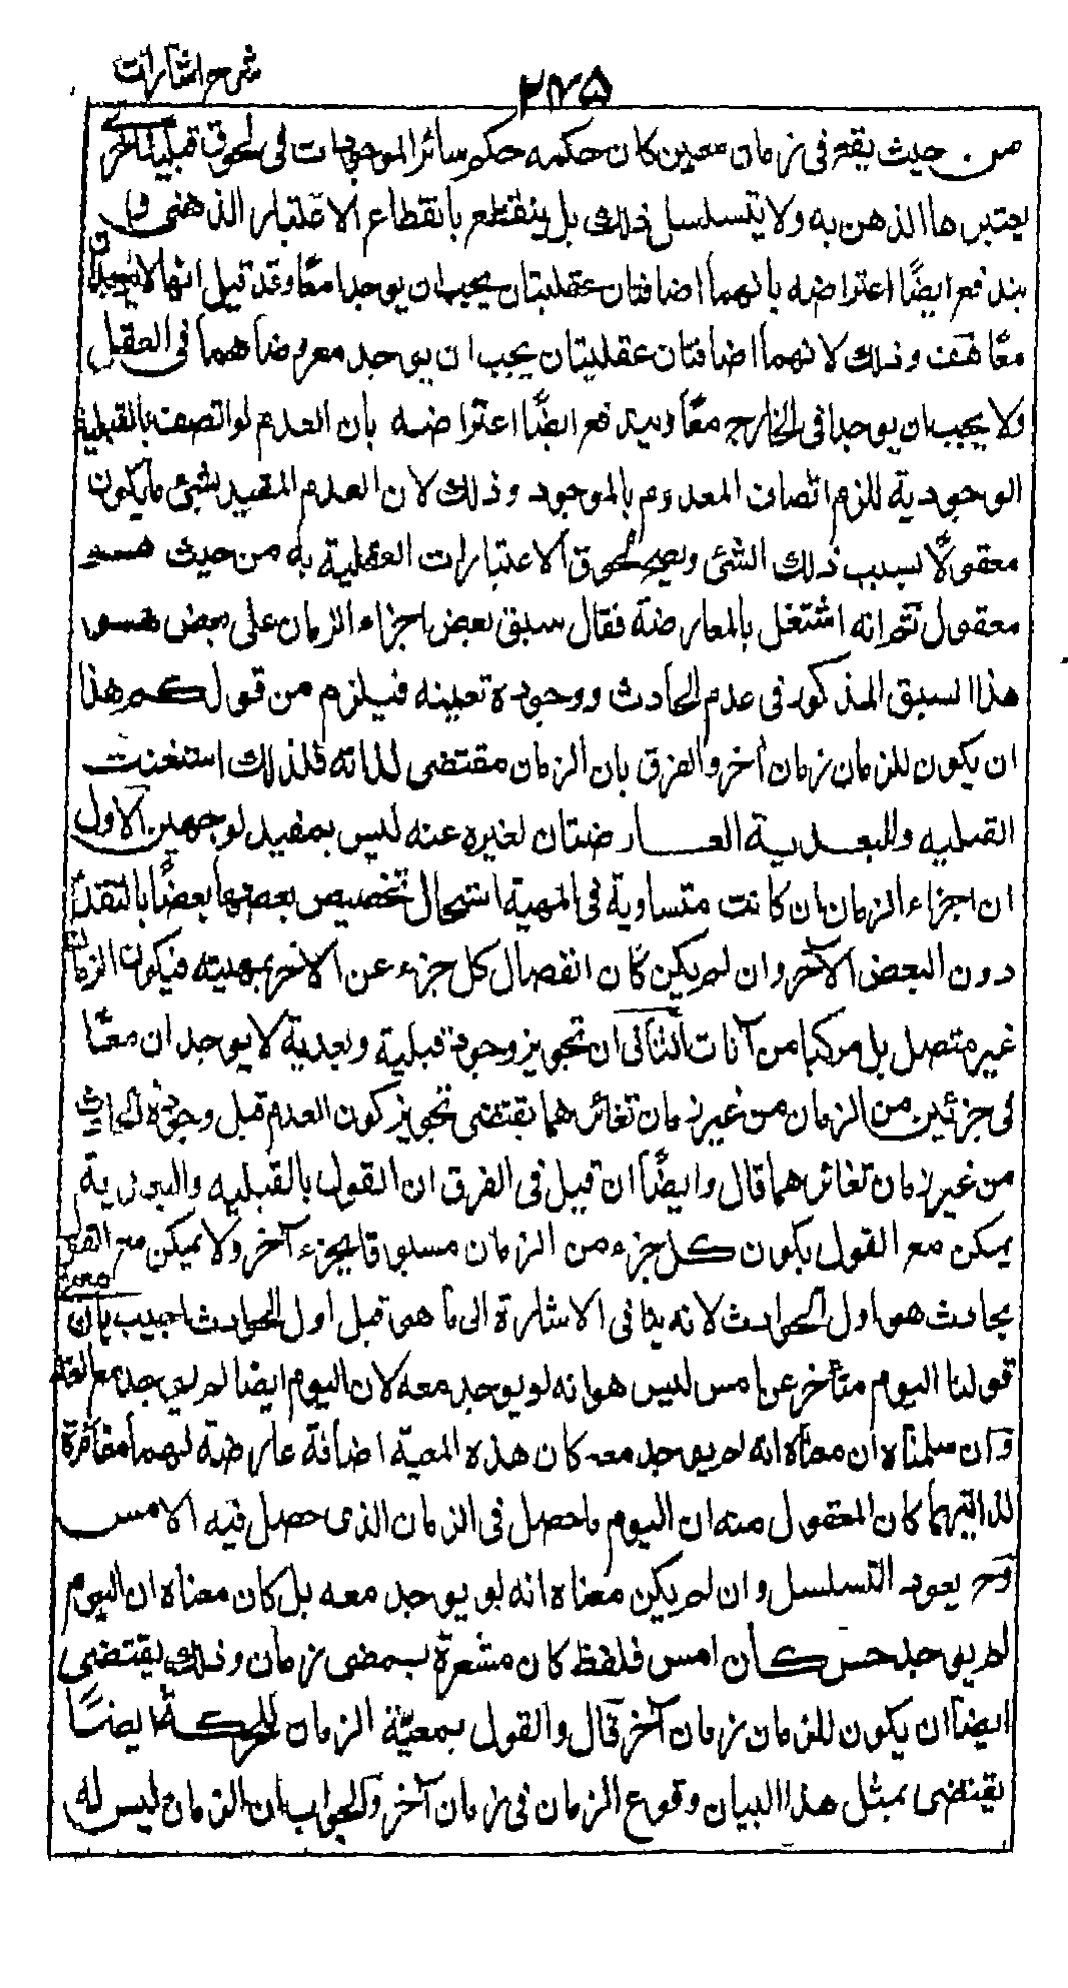 شرح اشارات
٢٧٥
من حيث يقع فى زمان معين كان حكمه حكم سائر الموجودات فى لحوق قبلية اخرى
يعتبرها الذهن به ولا يتسلسل ذلك بل ينقطع بانقطاع الاعتبار الذهنى و
يندفع ايضًا اعتراضه بانهما اضافتان عقليتان يجب ان يوجدا معًا وقد قيل انهما لا يوجدان
معًا هف وذلك لانهما اضافتان عقليتان يجب ان يوجد معروضاهما فى العقل
ولا يجب ان يوجدا فى الخارج معًا ويندفع ايضًا اعتراضه بان العدم لو اتصف بالقبلية
الوجودية للزم اتصاف المعدوم بالموجود وذلك لان العدم المقيد بشئ ما يكون
معقولًا بسبب ذلك الشئ ويصح لحوق الاعتبارات العقلية به من حيث هو
معقول ثم انه اشتغل بالمعارضة فقال سبق بعض اجزاء الزمان على بعض هو
هذا السبق المذكور فى عدم الحادث ووجوده بعينه فيلزم من قولكم هذا
ان يكون للزمان زمان آخر والفرق بان الزمان مقتضى لذاته فلذلك استغنت
القبليه والبعدية العارضتان لغيره عنه ليس بمفيد لوجهين الاول
ان اجزاء الزمان ان كانت متساوية فى المهية استحال تخصيص بعضها بعضًا بالتقدم
دون البعض الآخر وان لم يكن كان انفصال كل جزء عن الآخر بمهيته فيكون الزمان
غير متصل بل مركبا من آنات الثانى ان تجويز وجود قبلية وبعدية لا يوجدان معًا
فى جزئين من الزمان من غير زمان تغائرهما يقتضى تجويز كون العدم قبل وجود الحادث
من غير زمان تغائرهما قال وايضًا ان قيل فى الفرق ان القول بالقبليه والبعدية
يمكن مع القول بكون كل جزء من الزمان مسبوقا بجزء آخر ولا يمكن مع القول
بحادث هو اول الحوادث لانه ينافى الاشارة الى ما هو قبل اول الحوادث اجيب بان معنى
قولنا اليوم متأخر عن امس ليس هو انه لم يوجد معه لان اليوم ايضا لم يوجد مع الغد
وان سلمنا ان معناه انه لم يوجد معه كان هذه المعيّة اضافة عارضة لهما مغائرة
لذاتيهما كان المعقول منه ان اليوم ما حصل فى الزمان الذى حصل فيه الامس
وح يعود التسلسل وان لم يكن معناه انه لم يوجد معه بل كان معناه ان اليوم
لم يوجد حين كان امس فلفظ كان مشعرة بمضى زمان وذلك يقتضى
ايضًا ان يكون للزمان زمان آخر قال والقول بمعيّة الزمان للحركة ايضًا
يقتضى بمثل هذا البيان وقوع الزمان فى زمان آخر والجواب ان الزمان ليس له